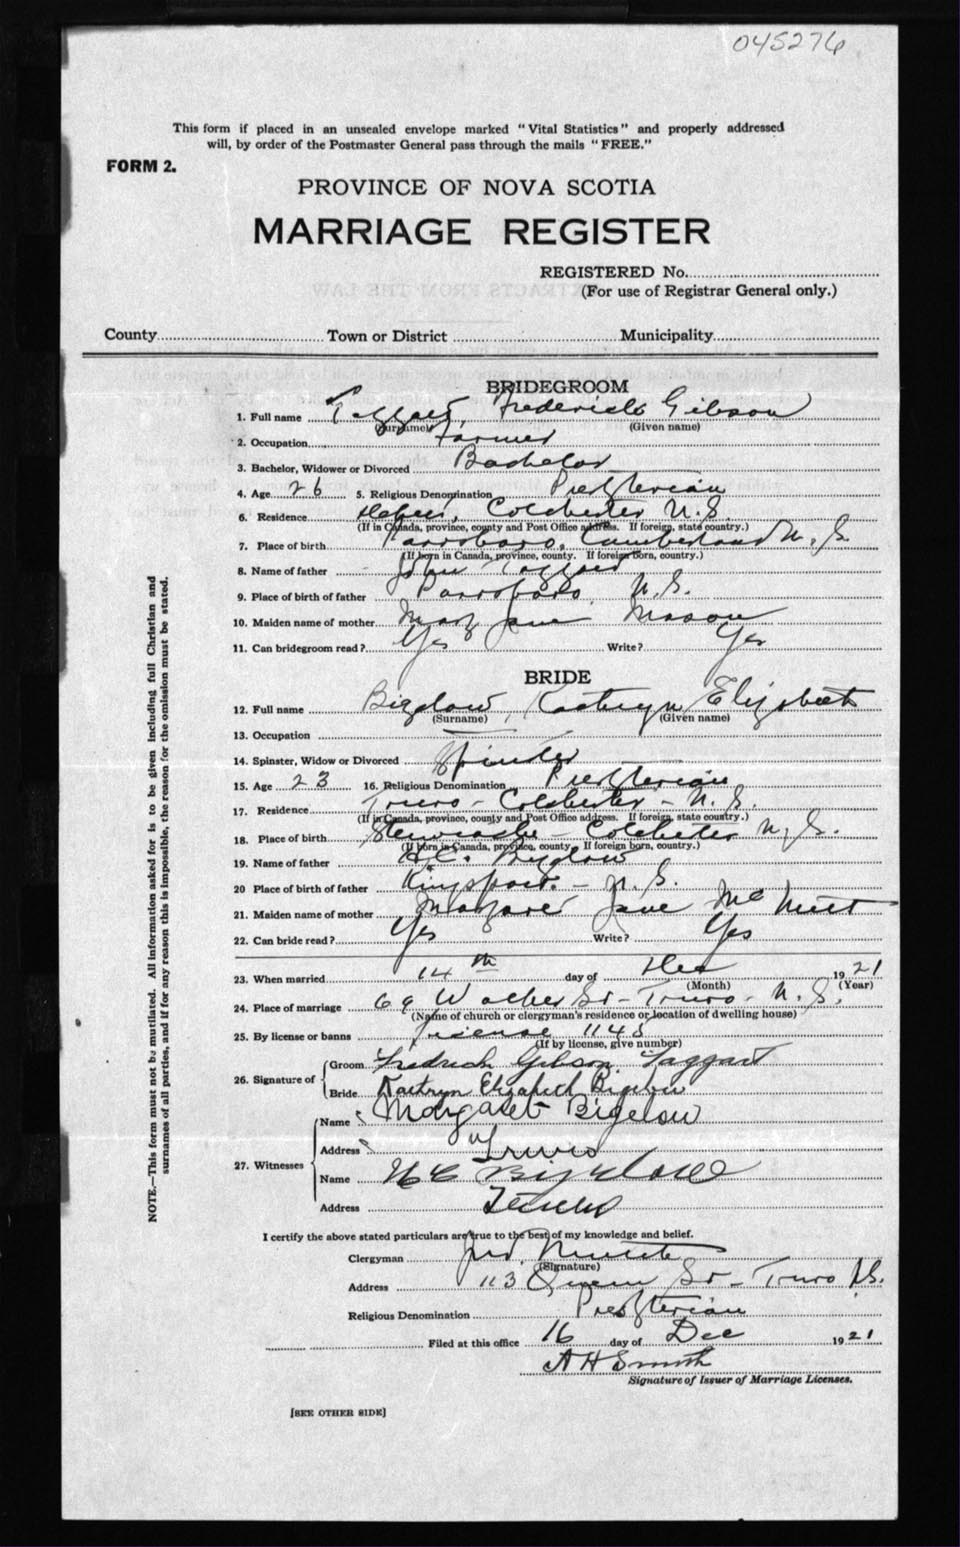 045276
This form if placed in an unsealed envelope marked "Vital Statistics" and properly addressed
will, by order of the Postmaster General pass through the mails "FREE."
FORM 2.
PROVINCE OF NOVA SCOTIA
MARRIAGE REGISTER
REGISTERED No.
(For use of Registrar General only.)
County Town or District Municipality
BRIDEGROOM
1. Full name Taggart, Frederick Gibson
(Surname) (Given name)
2. Occupation Farmer
3. Bachelor, Widower or Divorced Bachelor
4. Age 26 5. Religious Denomination Presbyterian
6. Residence Debert, Colchester N.S.
(If in Canada, province, county and Post Office address. If foreign, state country.)
7. Place of birth Parrsboro, Cumberland N.S.
(If born in Canada, province, county. If foreign born, country.)
8. Name of father John Taggart
9. Place of birth of father Parrsboro, N.S.
10. Maiden name of mother Mary Jane Mason
11. Can bridegroom read? Yes Write? Yes
BRIDE
12. Full name Bigelow, Kathryn Elizabeth
(Surname) (Given name)
13. Occupation —
14. Spinster, Widow or Divorced Spinster
15. Age 23 16. Religious Denomination Presbyterian
17. Residence Truro - Colchester - N.S.
(If in Canada, province, county and Post Office address. If foreign, state country.)
18. Place of birth - Colchester N.S.
(If born in Canada, province, county. If foreign born, country.)
19. Name of father H.C. Bigelow
20 Place of birth of father Kingsport. - N.S.
21. Maiden name of mother Margaret Jane McNutt
22. Can bride read? Yes Write? Yes
23. When married 14th day of Dec 1921
(Month) (Year)
24. Place of marriage 69 Walker St - Truro - N.S.
(Name of church or clergyman's residence or location of dwelling house)
25. By license or banns License 1145
(If by license, give number)
26. Signature of Groom Fredrick Gibson Taggart
Bride Kathryn Elizabeth Bigelow
27. Witnesses Name Margaret Bigelow
Address Truro
Name H C Bigelow
Address Truro
I certify the above stated particulars are true to the best of my knowledge and belief.
Clergyman
(Signature)
Address 113 Queen St - Truro N.S.
Religious Denomination Presbyterian
Filed at this office 16 day of Dec 1921
A H Smith
Signature of Issuer of Marriage Licenses.
[SEE OTHER SIDE]
NOTE.—This form must not be mutilated. All information asked for is to be given including full Christian and
surnames of all parties, and if for any reason this is impossible, the reason for the omission must be stated.